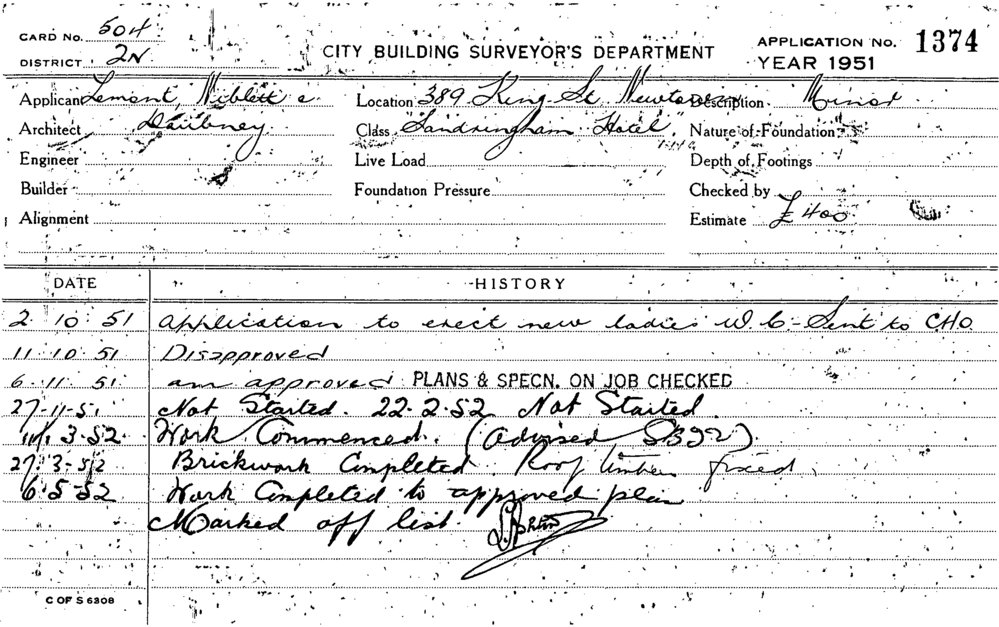 CARD No. 504
DISTRICT 2N
CITY BUILDING SURVEYOR'S DEPARTMENT
APPLICATION No. 1374
YEAR 1951
Applicant Lemont, Niblett &
Location 389 King St Newtown
Description Minor
Architect Daubney
Class "Sandringham Hotel"
Nature of Foundation
Engineer
Live Load
Depth of Footings
Builder
Foundation Pressure
Checked by
Alignment
Estimate £400
DATE HISTORY
2 10 51 Application to erect new ladies W.C. - Sent to CHO.
11 10 51 Disapproved
6 11 51 am approved PLANS & SPECN. ON JOB CHECKED
27-11-51 Not Started. 22-2-52 Not Started
3-52 Work Commenced. (Advised SB92).
27-3-52 Brickwork Completed. Roof timber fixed.
6-5-52 Work Completed to approved plan
Marked off list.
C OF S 6308